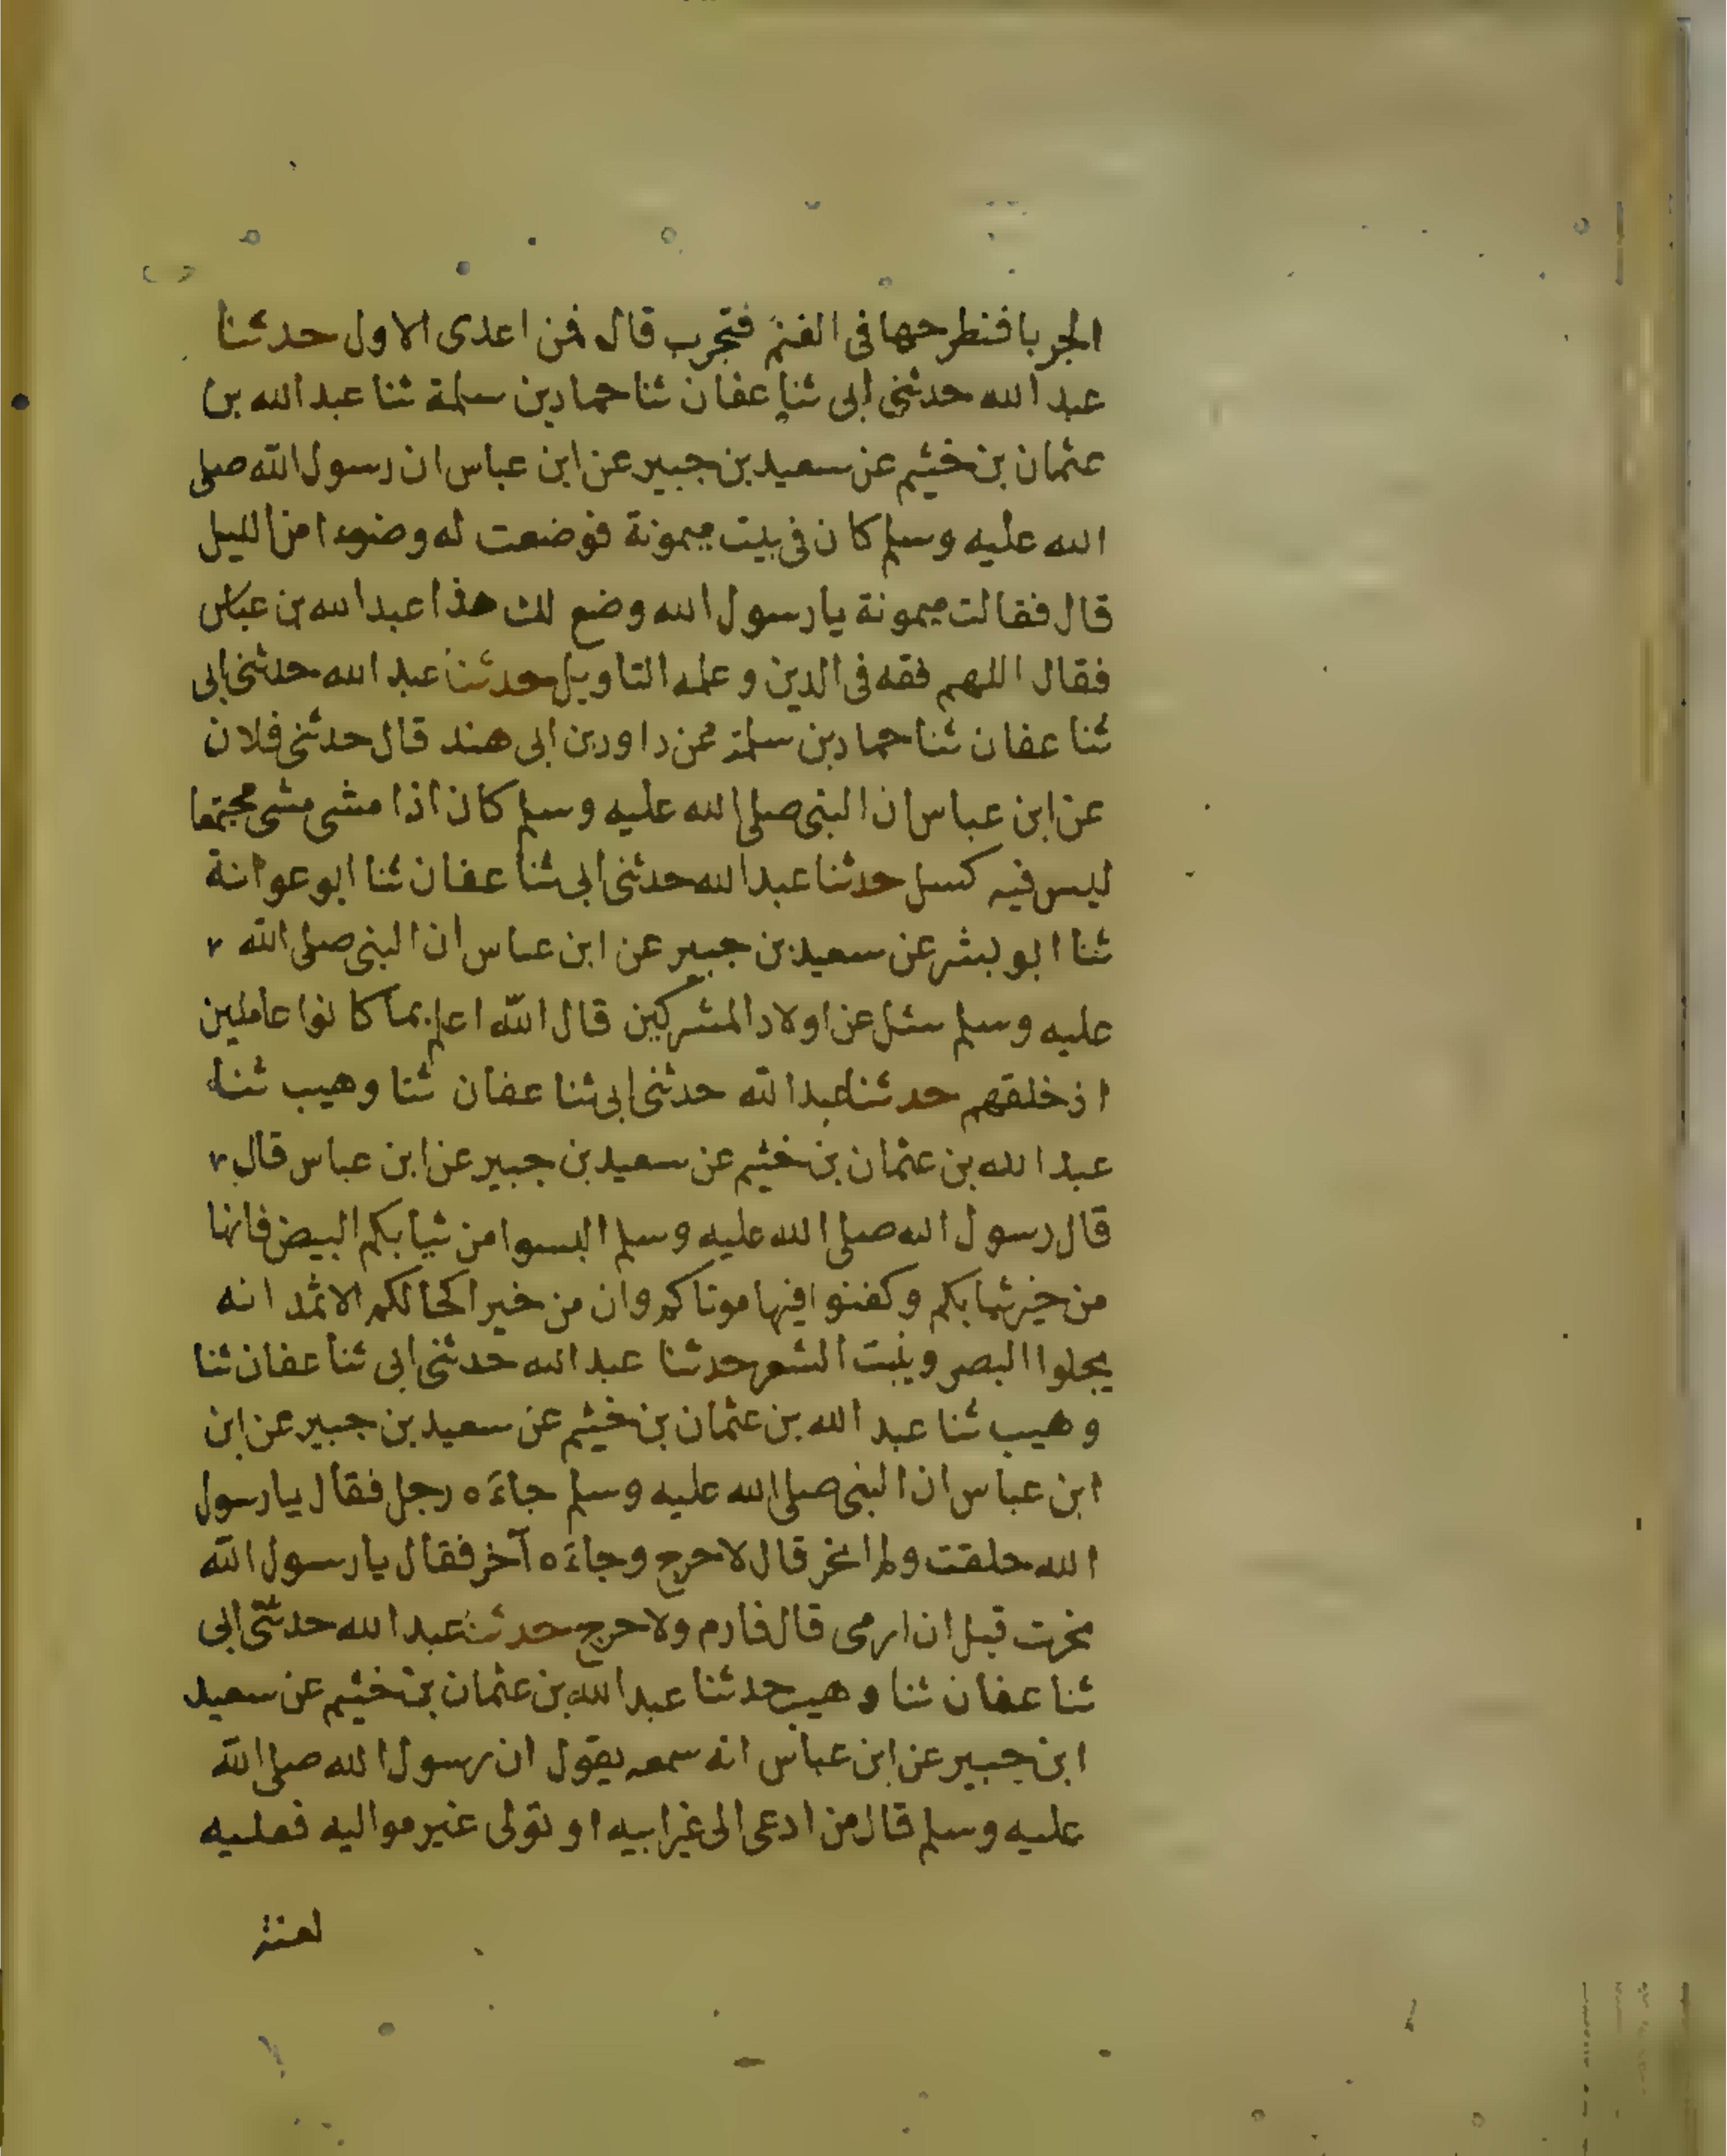 الجربا فنطرحها فى الغنم فتجرب قال فمن اعدى الاول حدثنا
عبد الله حدثنى ابى ثنا عفان ثنا حماد بن سلمة ثنا عبد الله بن
عثمان بن خثيم عن سعيد بن جبير عن ابن عباس ان رسول الله صلى
الله عليه وسلم كان فى بيت ميمونة فوضعت له وضوءا من الليل
قال فقالت ميمونة يا رسول الله وضع لك هذا عبد الله بن عباس
فقال اللهم فقه فى الدين و علمه التاويل حدثنا عبد الله حدثنى ابى
ثنا عفان ثنا حماد بن سلمة عن داود بن ابى هند قال حدثنى فلان
عن ابن عباس ان النبى صلى الله عليه وسلم كان اذا مشى مشى مجتمعا
ليس فيه كسل حدثنا عبد الله حدثنى ابى ثنا عفان ثنا ابو عوانة
ثنا ابو بشر عن سعيد بن جبير عن ابن عباس ان النبى صلى الله
عليه وسلم سئل عن اولاد المشركين قال الله اعلم بما كانوا عاملين
اذ خلقهم حدثنا عبد الله حدثنى ابى ثنا عفان ثنا وهيب ثنا
عبد الله بن عثمان بن خثيم عن سعيد بن جبير عن ابن عباس قال
قال رسول الله صلى الله عليه وسلم البسوا من ثيابكم البيض فانها
من خير ثيابكم وكفنوا فيها موتاكم وان من خير اكحالكم الاثمد انه
يجلوا البصر وينبت الشعر حدثنا عبد الله حدثنى ابى ثنا عفان ثنا
وهيب ثنا عبد الله بن عثمان بن خثيم عن سعيد بن جبير عن ابن
ابن عباس ان النبى صلى الله عليه وسلم جاءه رجل فقال يا رسول
الله حلقت ولم انحر قال لا حرج وجاءه آخر فقال يا رسول الله
نحرت قبل ان ارمى قال فارم ولا حرج حدثنا عبد الله حدثنى ابى
ثنا عفان ثنا وهيب حدثنا عبد الله بن عثمان بن خثيم عن سعيد
ابن جبير عن ابن عباس انه سمعه يقول ان رسول الله صلى الله
عليه وسلم قال من ادعى الى غير ابيه او تولى غير مواليه فعليه
لعنة